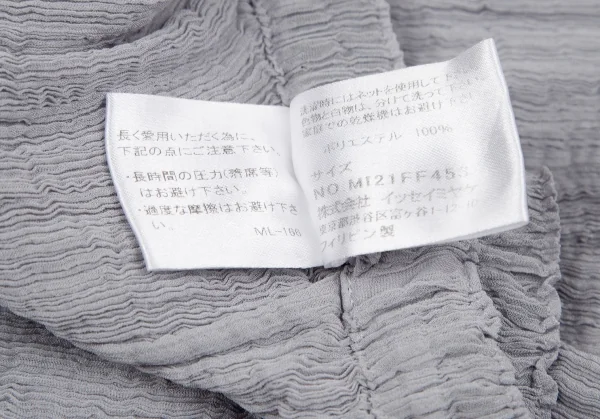 長く愛用いただく為に。
下記の点にご注意下さい。
・長時間の圧力(着席等)
はお避け下さい。
・過度な摩擦はお避け下さ
い。
ML-166
洗濯時にはネットを使用して下さい。
色物と白物は、分けて洗って下さい。
家庭での乾燥機はお避け下さい。
ポリエステル 100%
サイズ
NO.MI21FF453
株式会社 イッセイミヤケ
東京都渋谷区富ヶ谷1-12-
フィリピン製